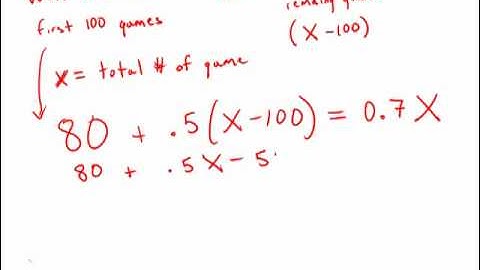 remaining
first 100 games
(x-100)
x = total # of game
80 + .5(x-100) = 0.7x
80 + .5x - 5